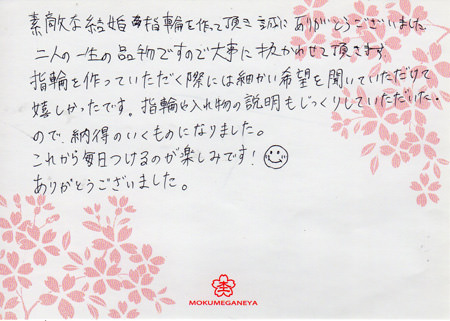 素敵な結婚指輪を作って頂き誠にありがとうございました
二人の一生の品物ですので大事に扱かわせて頂きます
指輪を作っていただく際には細かい希望を聞いていただけて
嬉しかったです。指輪や入れ物の説明もじっくりしていただいた
ので、納得のいくものになりました。
これから毎日つけるのが楽しみです!
ありがとうございました。
MOKUMEGANEYA